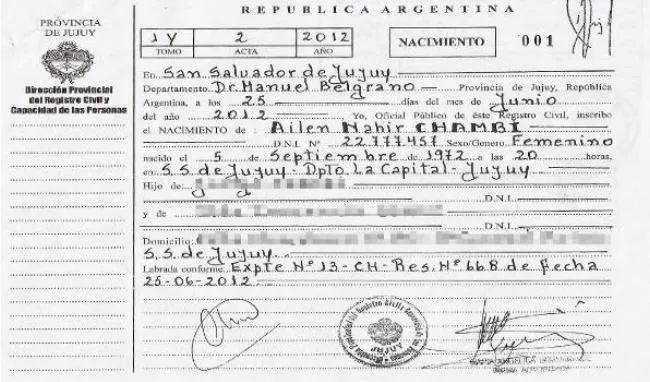 REPUBLICA ARGENTINA
PROVINCIA
DE JUJUY
Dirección Provincial
del Registro Civil y
Capacidad de las Personas
1Y 2 2012
TOMO ACTA AÑO
NACIMIENTO
001
En San Salvador de Jujuy
Departamento Dr. Manuel Belgrano Provincia de Jujuy, República
Argentina, a los 25 días del mes de Junio
del año 2012 Yo, Oficial Público de éste Registro Civil, inscribo
el NACIMIENTO de : Ailen Nahir CHAMBI
D.N.I. Nº 22.777.457 Sexo/Genero Femenino
nacido el 5 de Septiembre de 1972 a las 20 horas,
en S.S. de Jujuy - Dpto. La Capital - Jujuy
Hijo de:
D.N.I.
y de
D.N.I.
Domicilio:
S.S. de Jujuy
Labrada conforme: Expte Nº 13 - CH - Res. Nº 668 de fecha
25-06-2012